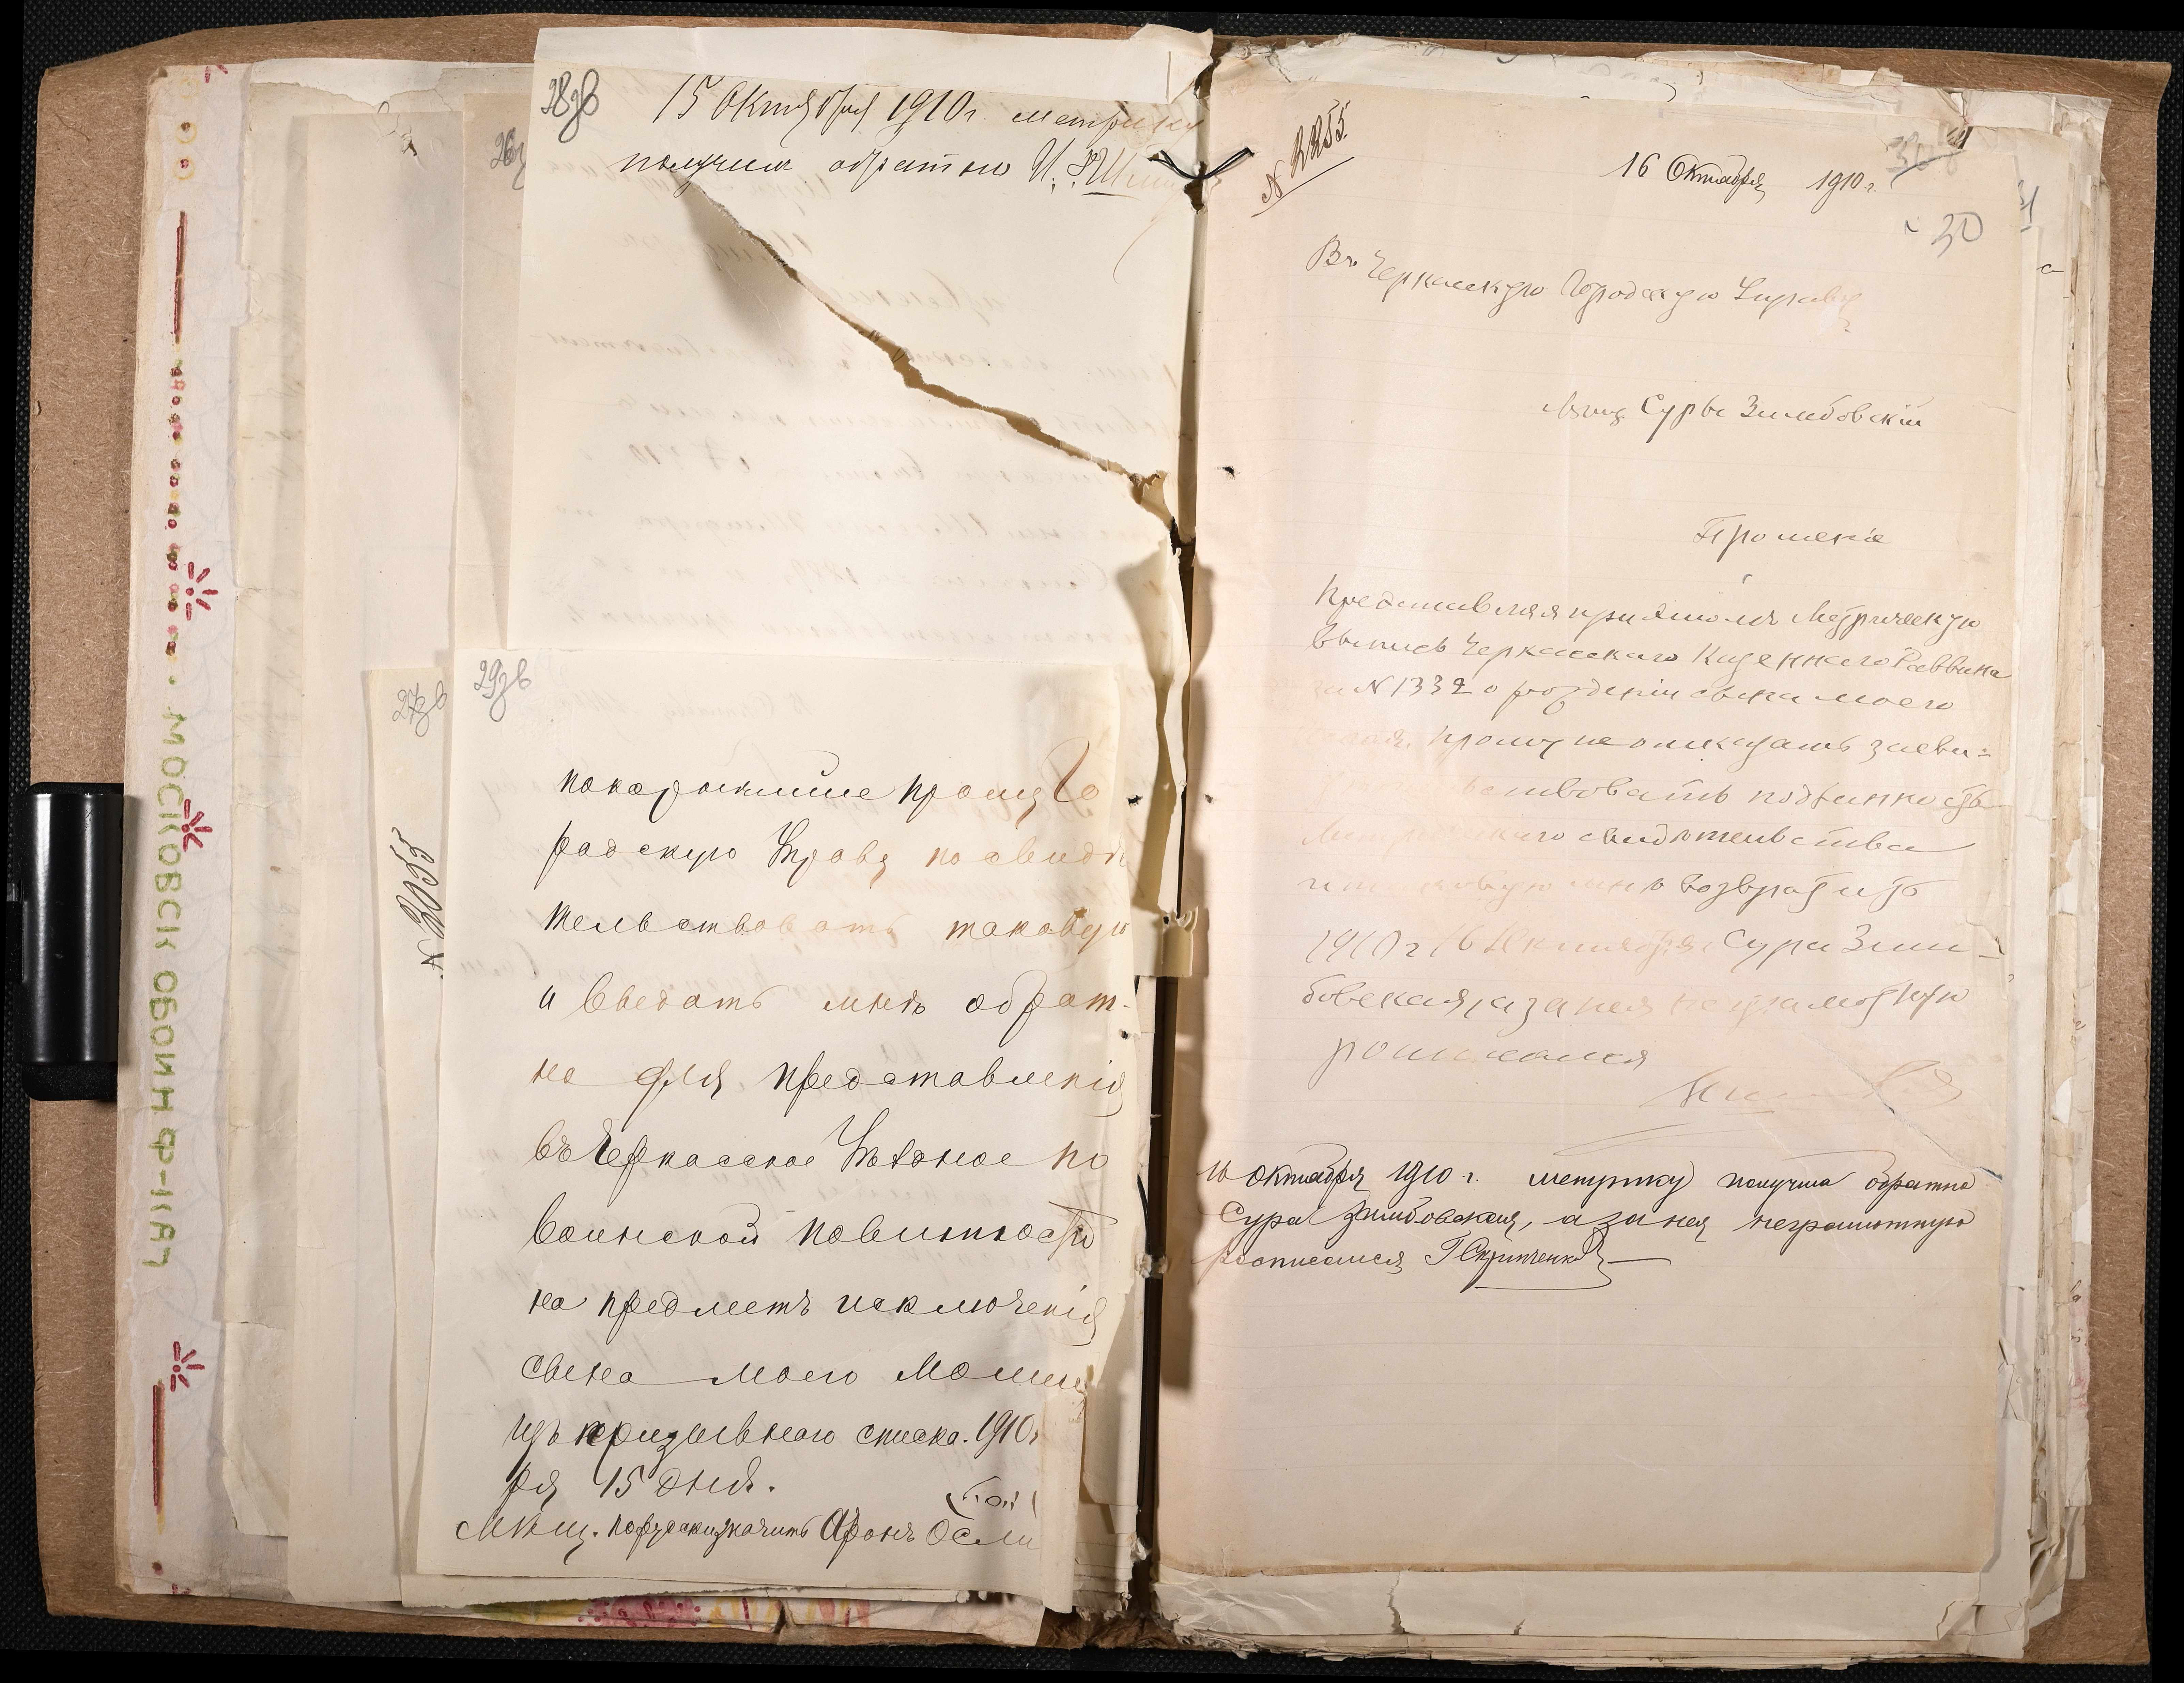 28зв
15 Октября 1910г. метрику
получил обратно И.
29зв
покорнейше прошу Го
радскую Управу посвидѣ
тельствовать таковую
и выдать мнѣ обрат-
на для представленія
въ Черкасское Уѣздное по
воинской повинности
на предметъ исключенія
сына моего Мошка
изъ призывнаго списка. 1910г
ря 15 дня.
Мѣщ. Аронъ Осли
27зв
N 2055
26
МОСКОВСК ОБОЙН Ф-КА
N 2255
16 Октября 1910 г.
30
31
Въ Черкасскую Городскую Управу
Сура Зимбовскій
Прошеніе
Представляя при этомъ Метрическую
выпись Черкасскаго Казеннаго Раввина
за N 1332 о рожденіи сына моего
прошу не отказать засви=
подлинность
свидѣтельства
мнѣ возвратить
1910 г 16 Октября Сура Зим-
бовская, а за нея неграмотную
росписался
16 Октября 1910 г. метрику получила обратно
Сура Зимбовская, а за нея неграмотную
росписался Г Скрипченко